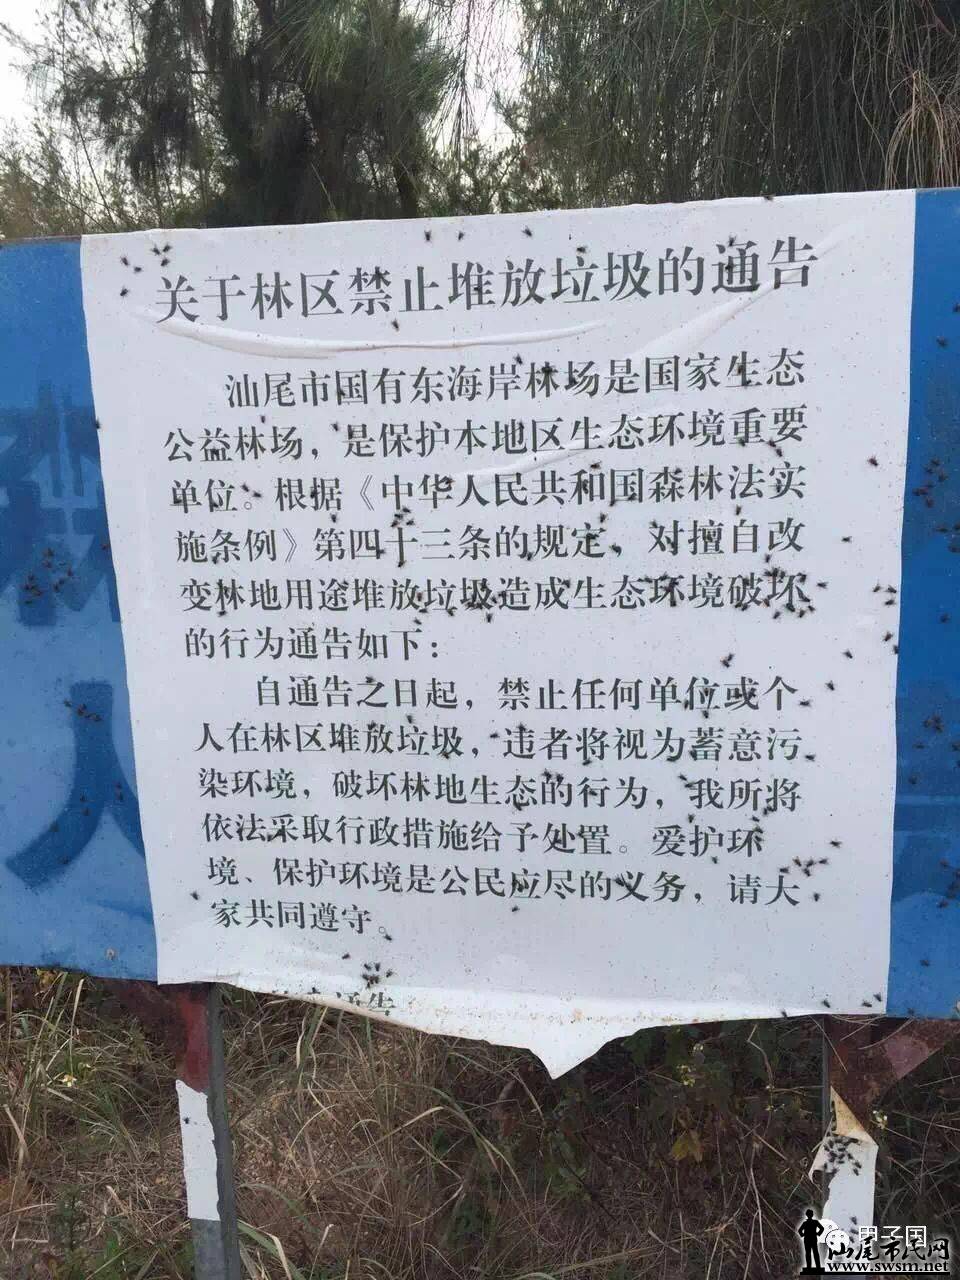 关于林区禁止堆放垃圾的通告
汕尾市国有东海岸林场是国家生态
公益林场，是保护本地区生态环境重要
单位。根据《中华人民共和国森林法实
施条例》第四十三条的规定，对擅自改
变林地用途堆放垃圾造成生态环境破坏
的行为通告如下：
自通告之日起，禁止任何单位或个
人在林区堆放垃圾，违者将视为蓄意污
染环境，破坏林地生态的行为，我所将
依法采取行政措施给予处置。爱护环
境、保护环境是公民应尽的义务，请大
家共同遵守。
林
人
甲子国
汕尾市民网
www.swsm.net